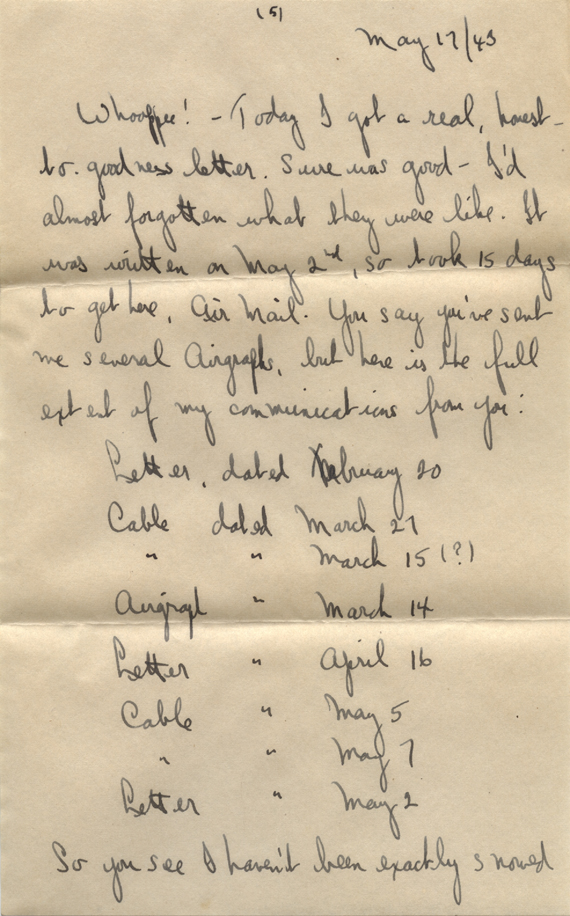 (5)
May 17/43
Whooppee! - Today I got a real, honest-
to-goodness letter. Sure was good - I'd
almost forgotten what they were like. It
was written on May 2nd, so took 15 days
to get here, Air Mail. You say you've sent
me several Airgraphs, but here is the full
extent of my communications from you:
Letter, dated February 20
Cable dated March 27
" " March 15 (?)
Airgraph " March 14
Letter " April 16
Cable " May 5
" " May 7
Letter " May 2
So you see I haven't been exactly snowed